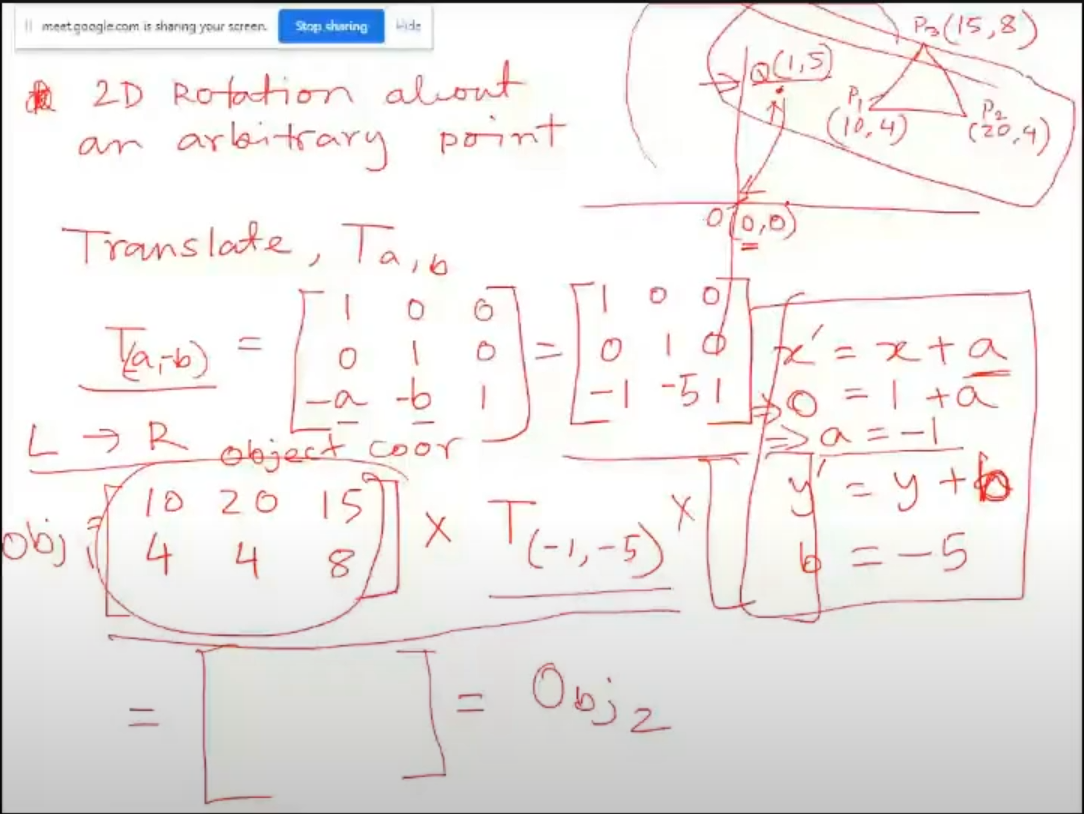 meet.google.com is sharing your screen. Stop sharing Hide
2D Rotation about
an arbitrary point
Q(1,5)
P3(15,8)
P1
(10,4)
P2
(20,4)
O(0,0)
Translate, Ta,b
T(a,-b) = [1 0 0 = [1 0 0
0 1 0 0 1 0
-a -b 1] -1 -5 1]
x' = x + a
=> 0 = 1 + a
=> a = -1
y' = y + b
b = -5
L → R object coor
Obj = [10 20 15 × T(-1,-5) × [ ]
4 4 8]
= [ ] = Obj2